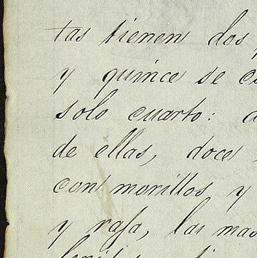 tas tienen dos
y quince se
solo cuarto:
de ellas, doce
con morillos y
y rafa, las mas